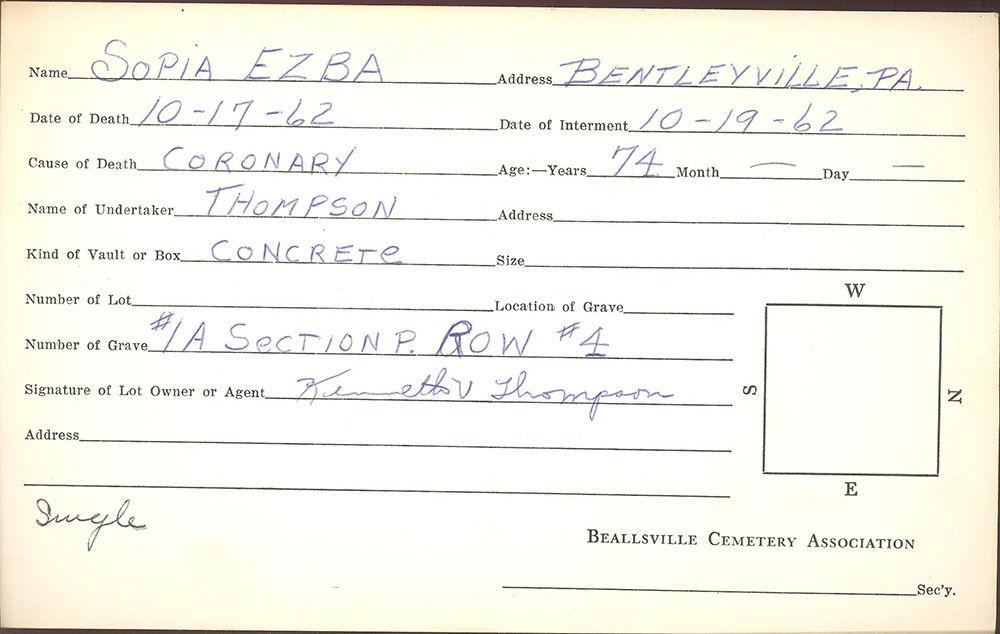 Name SOPIA EZBA Address BENTLEYVILLE, PA.
Date of Death 10-17-62 Date of Interment 10-19-62
Cause of Death CORONARY Age:—Years 74 Month — Day —
Name of Undertaker THOMPSON Address
Kind of Vault or Box CONCRETE Size
Number of Lot Location of Grave
Number of Grave #1A SECTION P. ROW #4
Signature of Lot Owner or Agent Kenneth V Thompson
Address
W
S
N
E
Single
BEALLSVILLE CEMETERY ASSOCIATION
Sec'y.